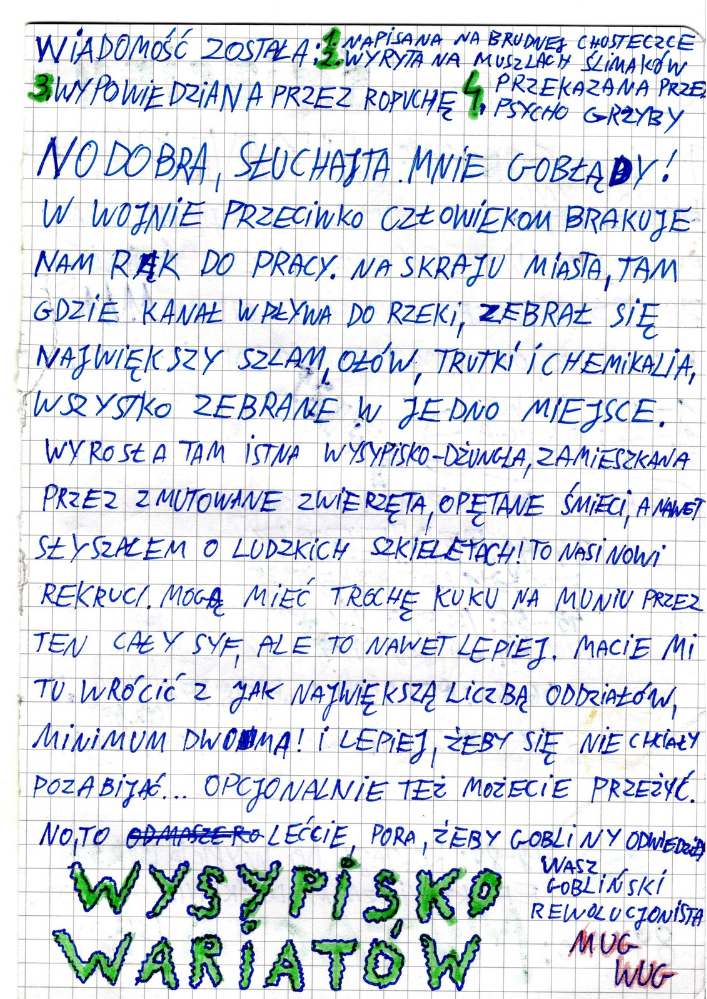 WIADOMOŚĆ ZOSTAŁA: 1. NAPISANA NA BRUDNEJ CHOSTECZCE
2. WYRYTA NA MUSZLACH ŚLIMAKÓW
3. WYPOWIEDZIANA PRZEZ ROPUCHĘ 4. PRZEKAZANA PRZEZ
PSYCHO GRZYBY
NO DOBRA, SŁUCHAJTA MNIE GOBŁĄDY!
W WOJNIE PRZECIWKO CZŁOWIEKOM BRAKUJE
NAM RĄK DO PRACY. NA SKRAJU MIASTA, TAM
GDZIE KANAŁ WPŁYWA DO RZEKI, ZEBRAŁ SIĘ
NAJWIĘKSZY SZLAM, OŁÓW, TRUTKI I CHEMIKALIA,
WSZYSTKO ZEBRANE W JEDNO MIEJSCE.
WYROSŁA TAM ISTNA WYSYPISKO-DŻUNGLA, ZAMIESZKANA
PRZEZ ZMUTOWANE ZWIERZĘTA, OPĘTANE ŚMIECI, A NAWET
SŁYSZAŁEM O LUDZKICH SZKIELETACH! TO NASI NOWI
REKRUCI. MOGĄ MIEĆ TROCHĘ KUKU NA MUNIU PRZEZ
TEN CAŁY SYF, ALE TO NAWET LEPIEJ. MACIE MI
TU WRÓCIĆ Z JAK NAJWIĘKSZĄ LICZBĄ ODDZIAŁÓW,
MINIMUM DWOMA! I LEPIEJ, ŻEBY SIĘ NIE CHCIAŁY
POZABIJAĆ... OPCJONALNIE TEŻ MOŻECIE PRZEŻYĆ.
NO, TO ODMASZERO LEĆCIE, PORA, ŻEBY GOBLINY ODWIEDZIŁY
WYSYPISKO
WARIATÓW
WASZ
GOBLIŃSKI
REWOLUCJONISTA
MUG
WUG